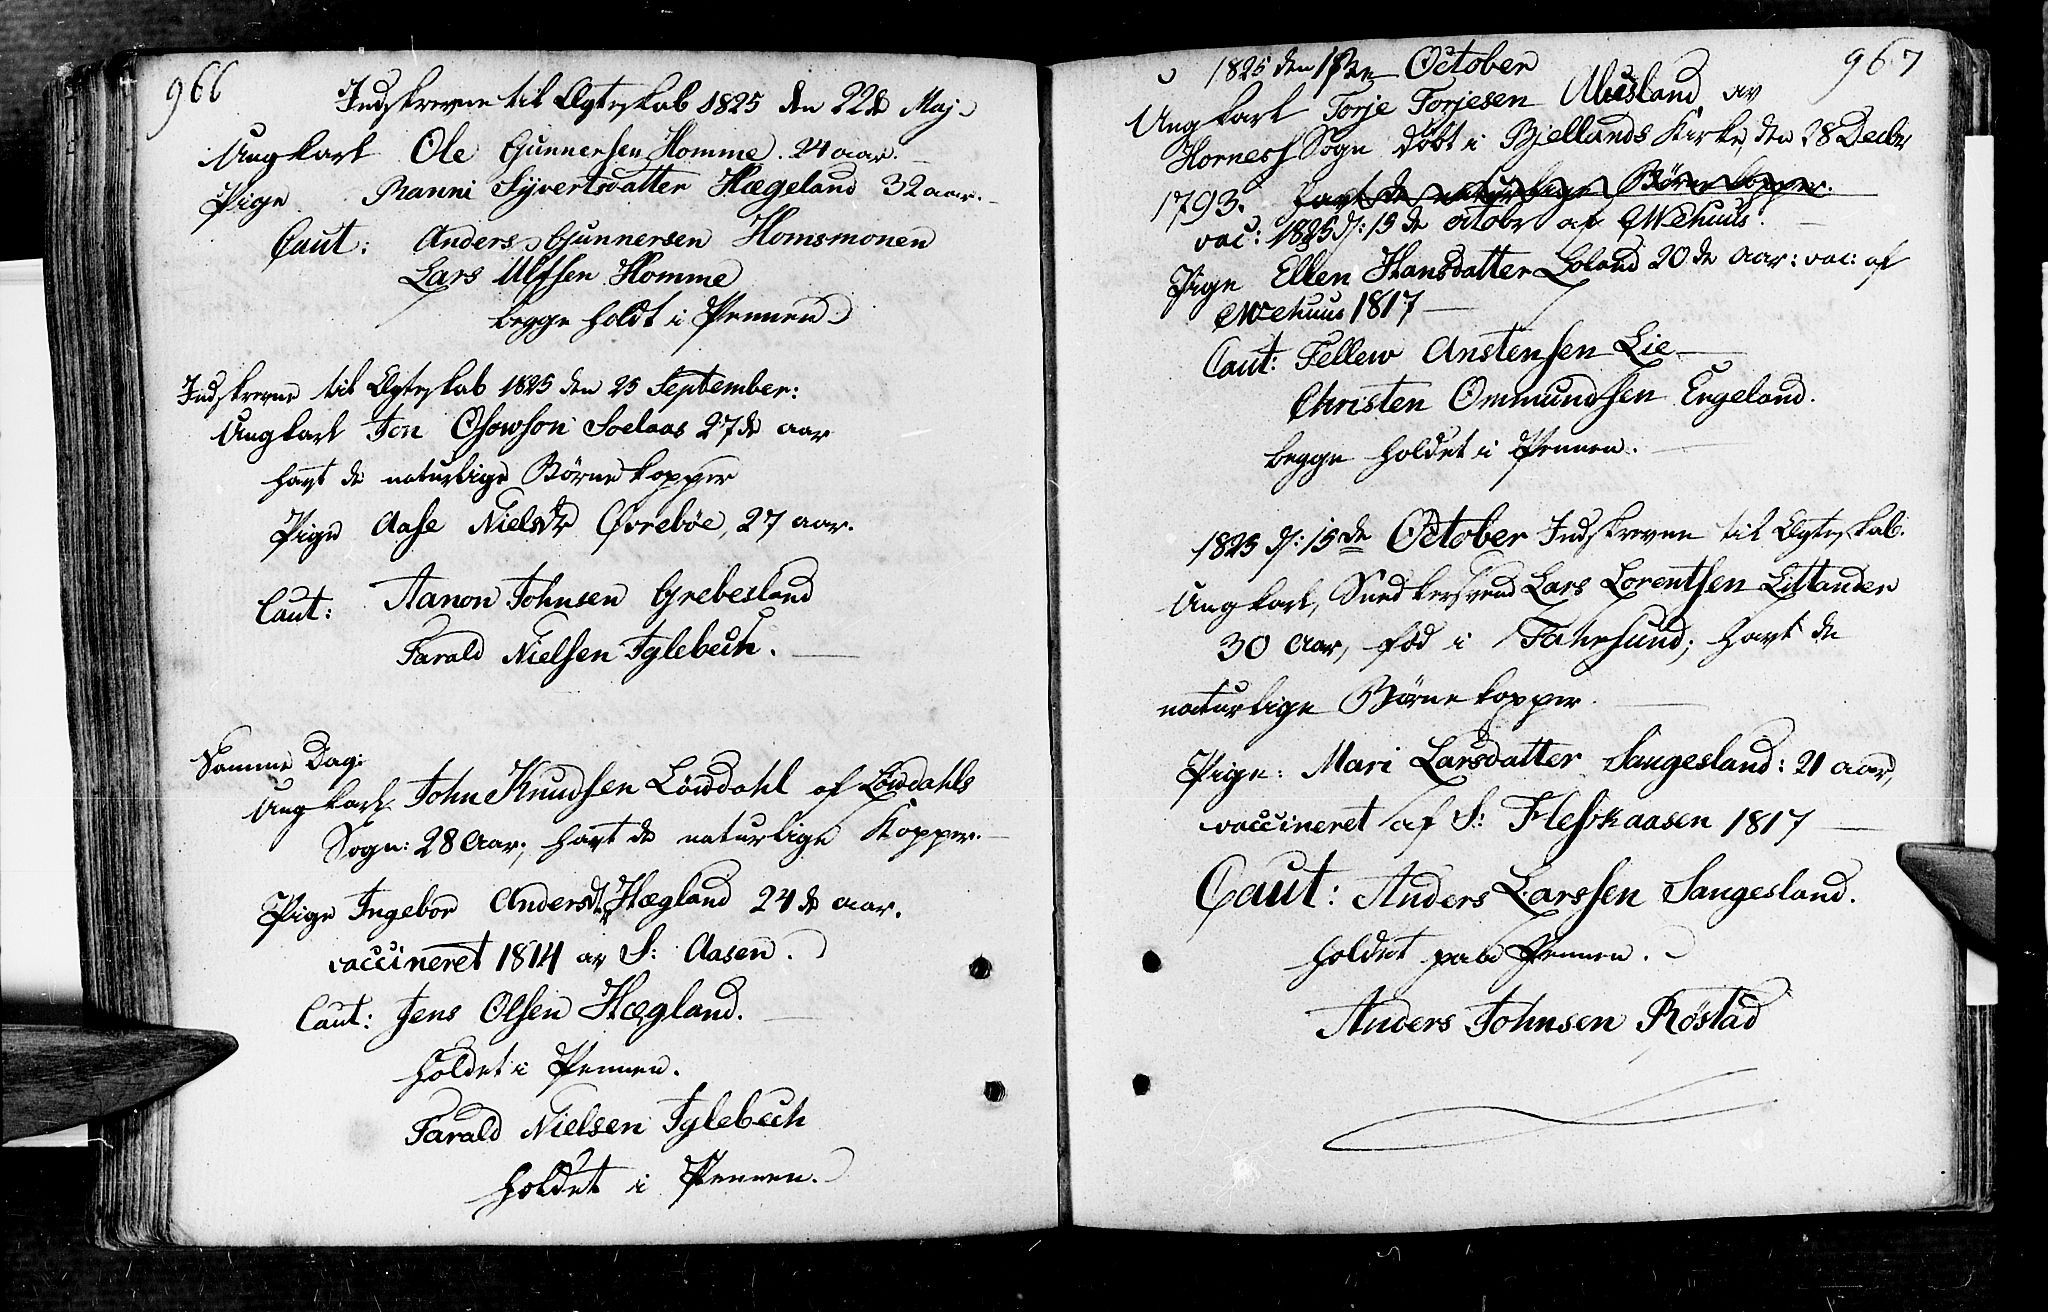 966
Indskrevne til Egteskab 1825 den 22de Maj
Ungkarl Ole Gunnersen Homme. 24 aar.
Pige Ranni Syvertsdatter Hægeland 32 aar.
Caut: Anders Gunnersen Homsmonen
Lars Ulfsen Homme
begge holdt i Pennen
Indskrevne til Egteskab 1825 den 25 September:
Ungkarl Jon Osowson Soelaas 27de aar
havt de naturlige Børnekopper
Pige Aase Nielsdtr Øvrebøe, 27 aar.
Caut: Aanon Johnsen Grebesland
Tarald Nielsen Iglebech.
Samme Dag:
Ungkarl John Knudsen Løwdahl af Løwdahls
Sogn: 28 Aar; havt de naturlige Kopper.
Pige Ingebor Andersdtr Hægland 24de aar.
vaccineret 1814 av S: Aasen.
Caut: Jens Olsen Hægland.
holdet i Pennen.
Tarald Nielsen Iglebech
holdet i Pennen.
967
1825 den October
Ungkarl Torje Torjesen Abusland av
Horness Sogn døbt i Bjellands Kirke, den 28 Decbr
1793. havt de naturlige Børnekopper.
vac: 1825 d: 15de octobr af CWehuus.
Pige Ellen Hansdatter Loland 20de Aar: vac: af
CWehuus 1817
Caut: Tellew Anstensen Lie
Christen Ommundsen Engeland.
begge holdet i Pennen.
1825 d: 15de October Indskrevne til Egteskab.
Ungkarl, Snedkersvend Lars Lorentsen Littander
30 Aar, fød i Fahrsund; havt de
naturlige Børnekopper
Pige: Mari Larsdatter Saugesland: 21 aar,
vaccineret af S: Fleskaasen 1817
Caut: Anders Larssen Saugesland.
holdet paa Pennen.
Anders Johnsen Røstad